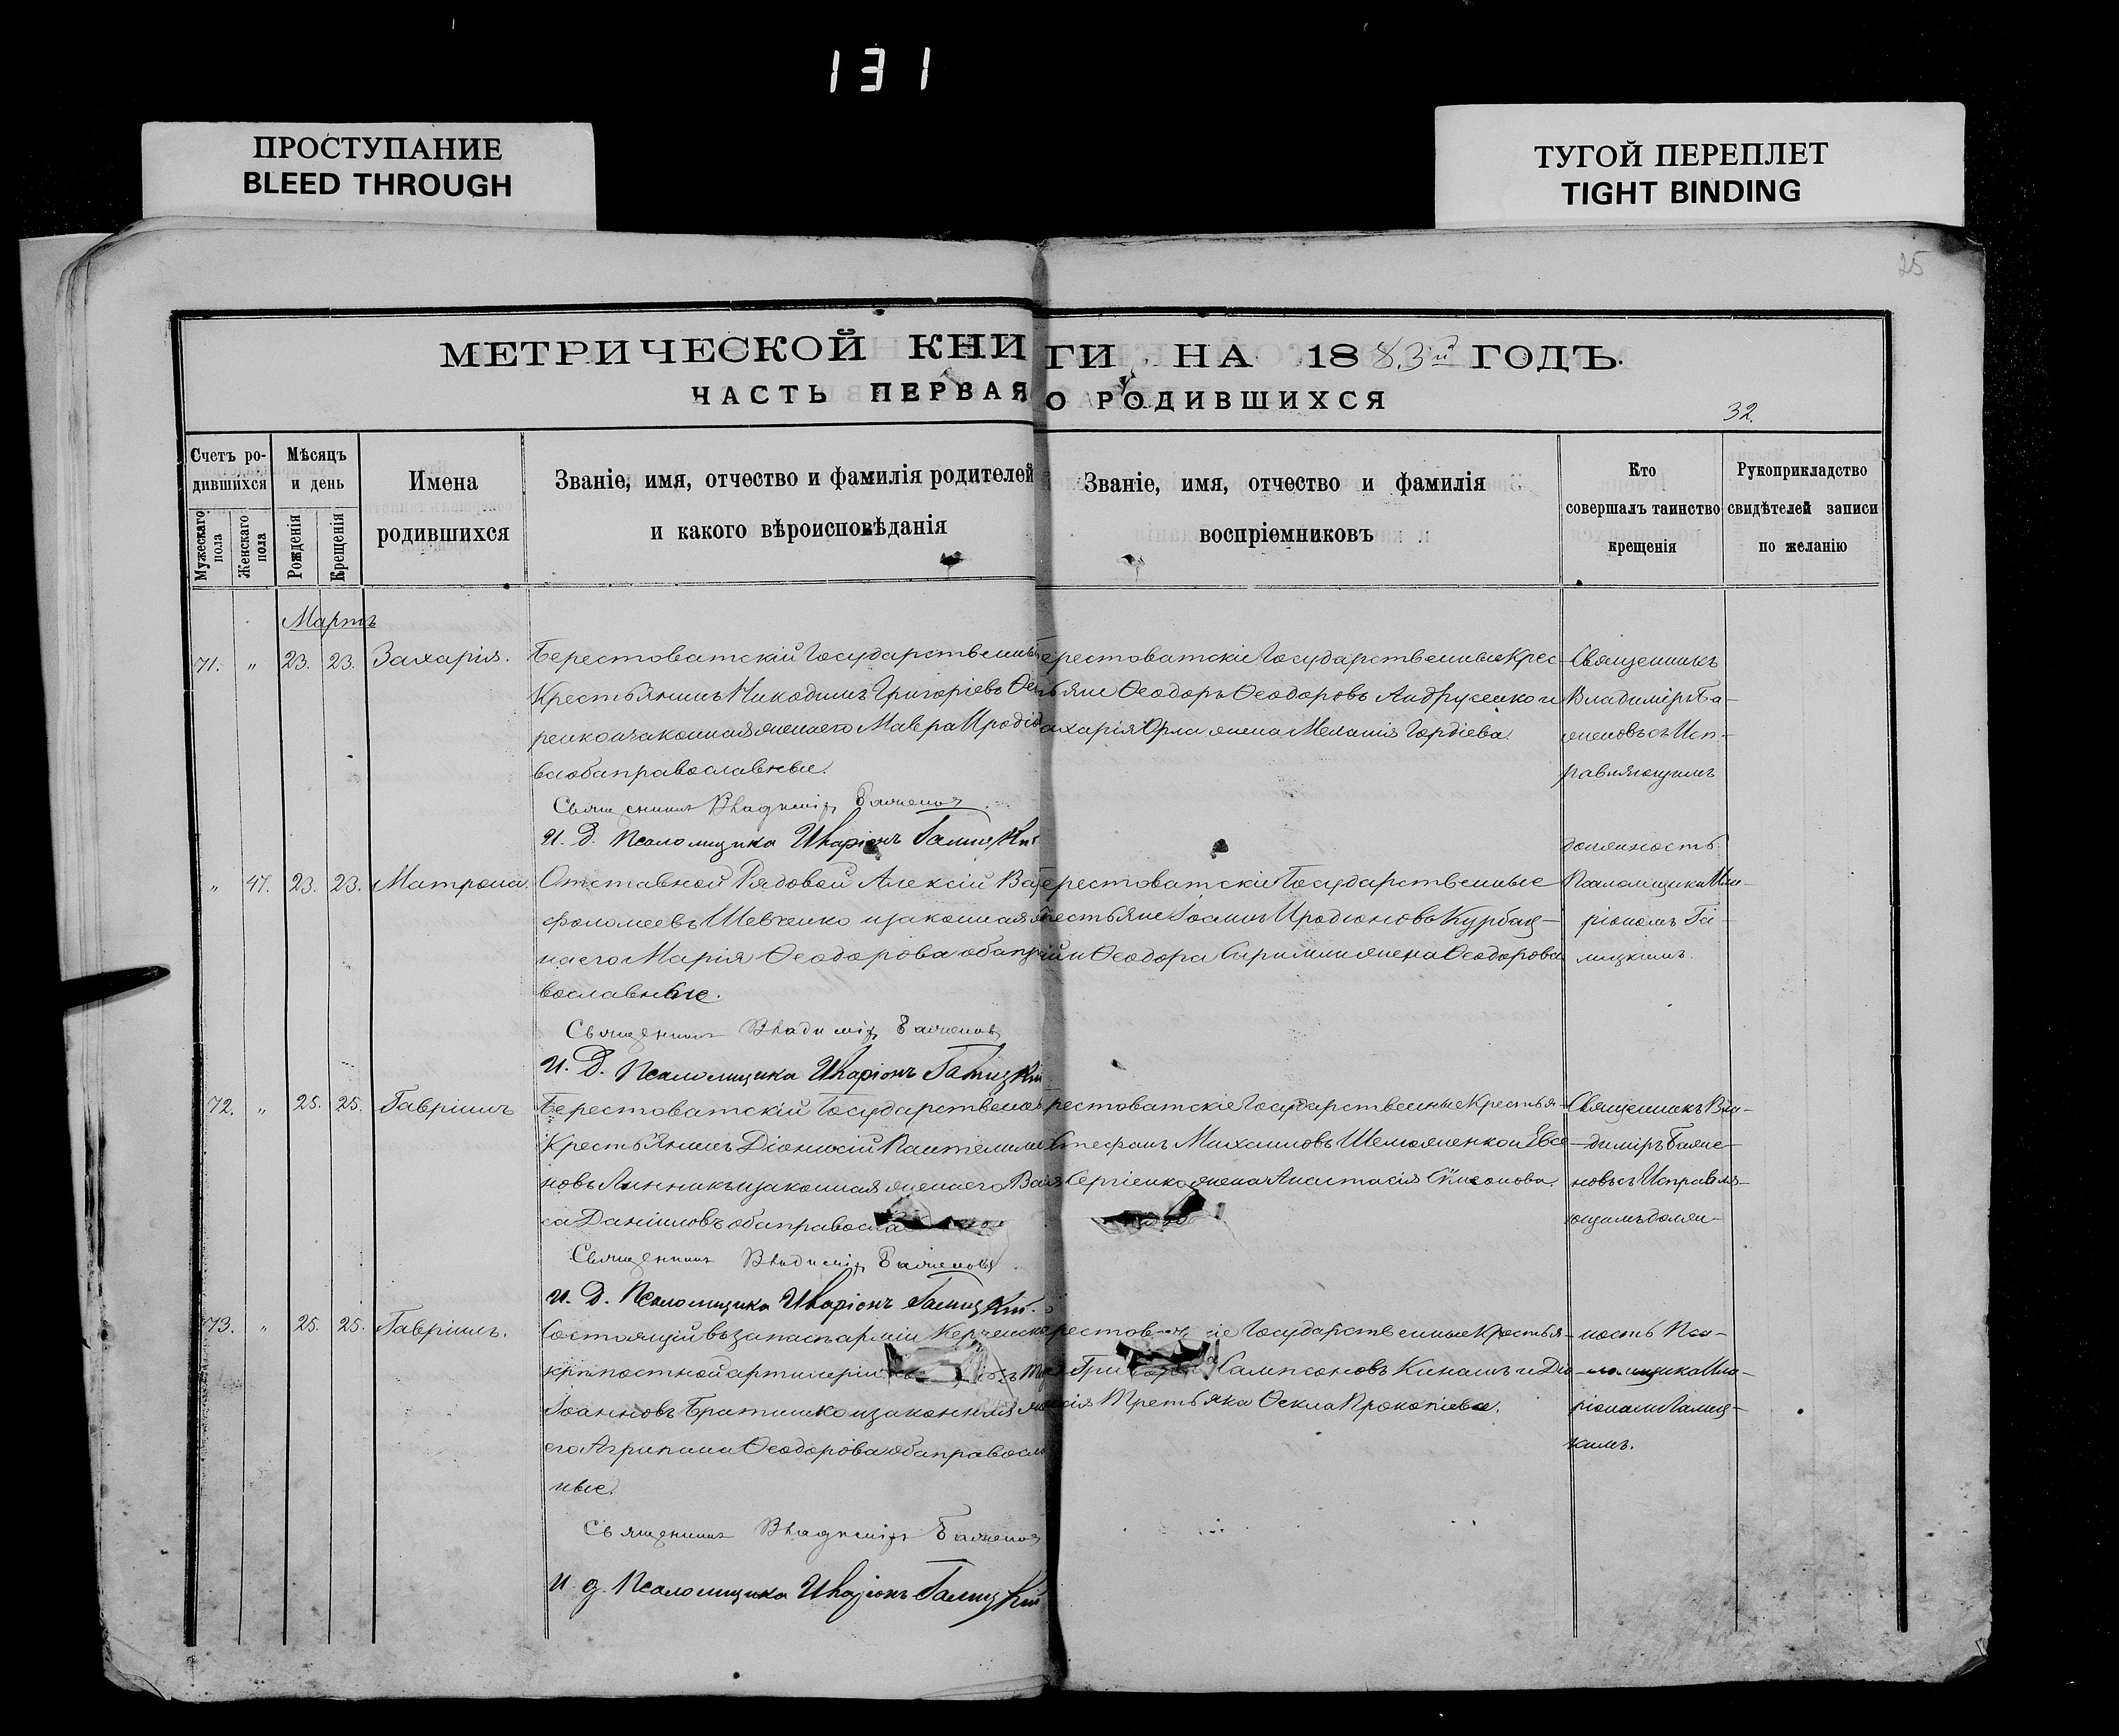 131
ПРОСТУПАНИЕ
BLEED THROUGH
ТУГОЙ ПЕРЕПЛЕТ
TIGHT BINDING
25
МЕТРИЧЕСКОЙ КНИГИ НА 1883й ГОДЪ.
ЧАСТЬ ПЕРВАЯ О РОДИВШИХСЯ
32.
Счетъ ро-
дившихся
Мужескаго пола
Женскаго пола
Мѣсяцъ
и день
Рожденія
Крещенія
Имена
родившихся
Званіе, имя, отчество и фамилія родителей
и какого вѣроисповѣданія
Званіе, имя, отчество и фамилія
воспріемниковъ
Кто
совершалъ таинство
крещенія
Рукоприкладство
свидѣтелей записи
по желанію
Мартъ
71. " 23. 23. Захарія.
Берестоватскій Государственный
Крестьянинъ Никодимъ Григоріевъ
ренко и законная жена его Мавра Иродіо
ва оба православные.
Священникъ Владиміръ Баженовъ
И. Д. Псаломщика Иларіонъ Галицкій
ерестоватскіе Государственные Крес-
ьяне Ѳеодоръ Ѳеодоровъ Андрусенко и
ахарія Орла жена Меланія Гордіева.
Священникъ
Владиміръ Ба-
женовъ съ Исп-
равляющимъ
должность
Псаломщика Ила-
ріономъ Га-
лицкимъ.
" 47. 23. 23. Матрона.
Отставной Рядовой Алексій Вар
фоломеевъ Шевченко и законная
на его Марія Ѳеодорова оба пра
вославные.
Священникъ Владиміръ Баженовъ
И. Д. Псаломщика Иларіонъ Галицкій
ерестоватскіе Государственные
естьяне Іоаннъ Иродіоновъ Курбац-
ій и Ѳеодора жена Ѳеодорова
72. " 25. 25. Гавріилъ
Берестоватскій Государственный
Крестьянинъ Діонисій Пантелеимо
новъ Линникъ и законная жена его Ва
са Даніилова оба правосла
Священникъ Владиміръ Баженовъ
И. Д. Псаломщика Иларіонъ Галицкій.
рестоватскіе Государственные Крестья-
Стефанъ Михаиловъ Шеложенко и Евсе
я Сергіенко жена Анастасія Симеонова.
Священникъ Вла-
диміръ Баже-
новъ съ Исправля-
ющимъ долж-
ность Пса-
ломщика Ила-
ріономъ Галиц-
кимъ.
73. " 25. 25. Гавріилъ.
Состоящій въ запасѣ арміи Керченско
крѣпостной артиллеріи
Іоанновъ Братишко и законная же
его Агрипина Ѳеодорова оба правосла
ные.
Священникъ Владиміръ Баженовъ
И. д. Псаломщика Иларіонъ Галицкій
рестов іе Государственные Крестья-
Григорій Сампсоновъ Кинашъ и Дio
сія Третьяка Ѳекла Прокопіева.